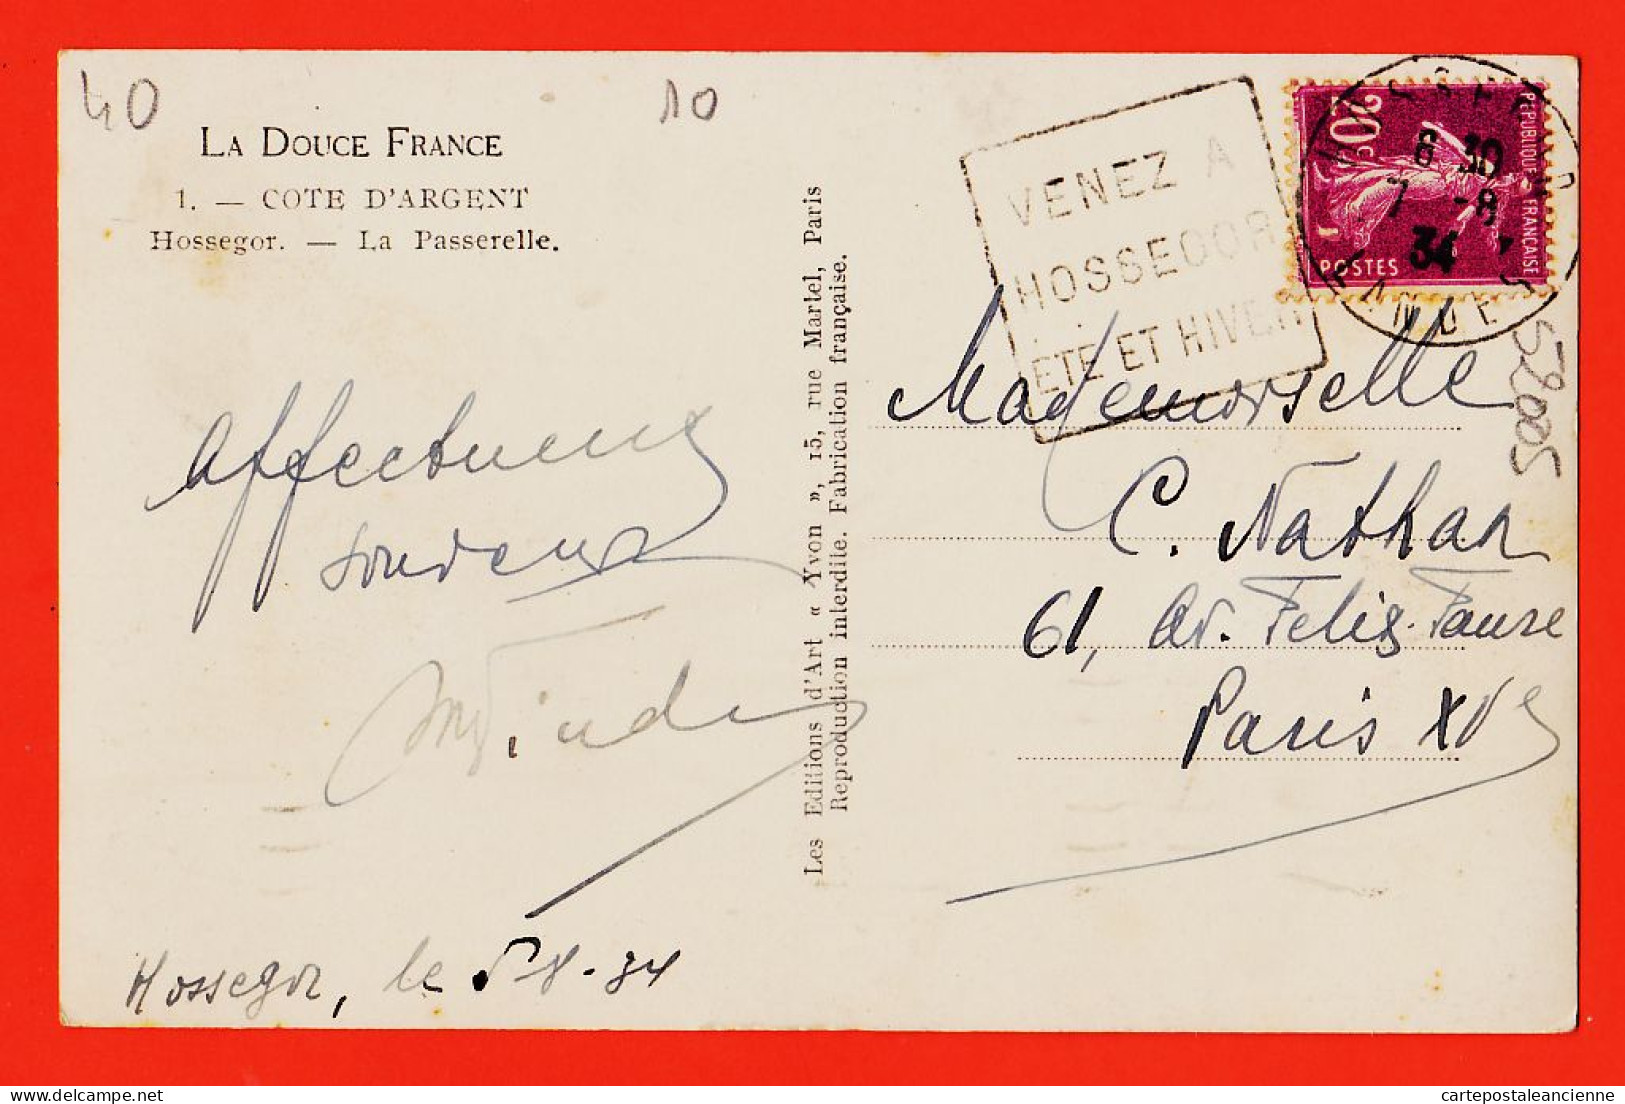 40
10
LA DOUCE FRANCE
1. — COTE D'ARGENT
Hossegor. — La Passerelle.
Affectueux
souvenir
Hossegor, le 5-8-34
Les Editions d'Art « Yvon », 15, rue Martel, Paris
Reproduction interdite. Fabrication française.
VENEZ A
HOSSEGOR
ETE ET HIVER
REPUBLIQUE FRANÇAISE
20c
POSTES
HOSSEGOR
6 30
7 -8
34
LANDES
52005
Mademoiselle
C. Nathan
61, Av. Felix-Faure
Paris XVe
cartepostaleancienne